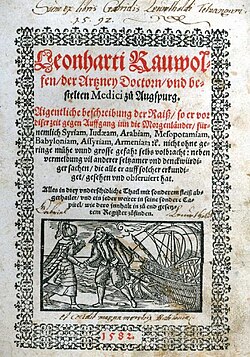 Sum ex libris Gabrielis
1592.
Leonharti Rauwol-
fen/ der Artzney Doctorn/ vnd be-
stelten Medici zů Augspurg.
Aigentliche beschreibung der Raiß/ so er vor
diser zeit gegen Auffgang inn die Morgenländer/ für-
nemlich Syriam, Iudæam, Arabiam, Mesopotamiam,
Babyloniam, Assyriam, Armeniam ꝛc. nicht ohne ge-
ringe mühe vnnd grosse gefahr selbs volbracht: neben
vermeldung vil anderer seltzamer vnd denckwürdi-
ger sachen/ die alle er auff solcher erkundi-
get/ gesehen vnd obseruiert hat.
Alles in drey vnderschidliche Thail mit sonderem fleiß ab-
gethailet/ vnd ein jeder weiter in seine sondere Ca-
pitel/ wie dero jnnhalt in zů end gesetz-
tem Register zůfinden.
1582.